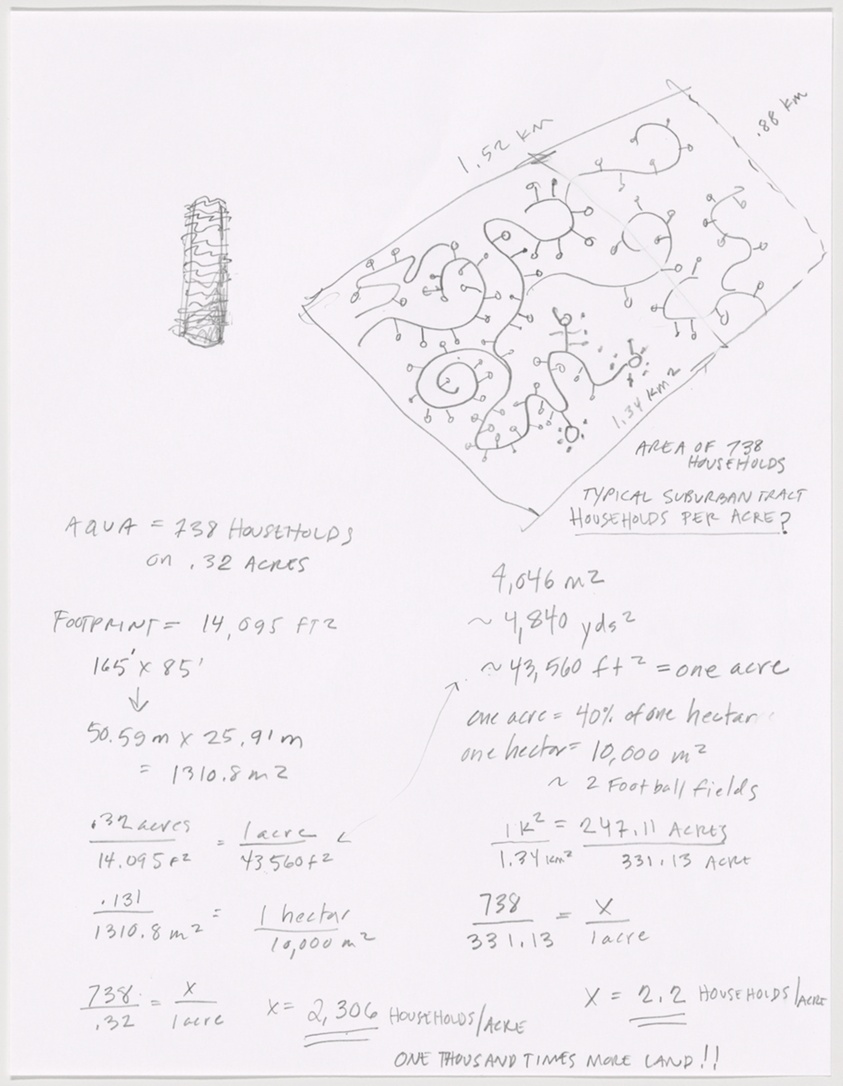 1.52 km
.88 km
1.34 km2
AREA OF 738
HOUSEHOLDS
TYPICAL SUBURBAN TRACT
HOUSEHOLDS PER ACRE?
AQUA = 738 HOUSEHOLDS
on .32 ACRES
FOOTPRINT = 14,095 FT2
165' X 85'
↓
50.59m X 25.91m
= 1310.8 m2
.32 acres / 14.095 F2 = 1 acre / 43560 f2
.131 / 1310.8 m2 = 1 hectar / 10,000 m2
738 / .32 = X / 1 acre
X = 2,306 HOUSEHOLDS/ACRE
4,046 m2
~ 4,840 yds2
~ 43,560 ft2 = one acre
one acre = 40% of one hectar
one hector = 10,000 m2
~ 2 Football fields
1 K2 / 1.34 km2 = 247.11 ACRES / 331.13 ACRE
738 / 331.13 = X / 1 acre
X = 2.2 HOUSEHOLDS/ACRE
ONE THOUSAND TIMES MORE LAND!!